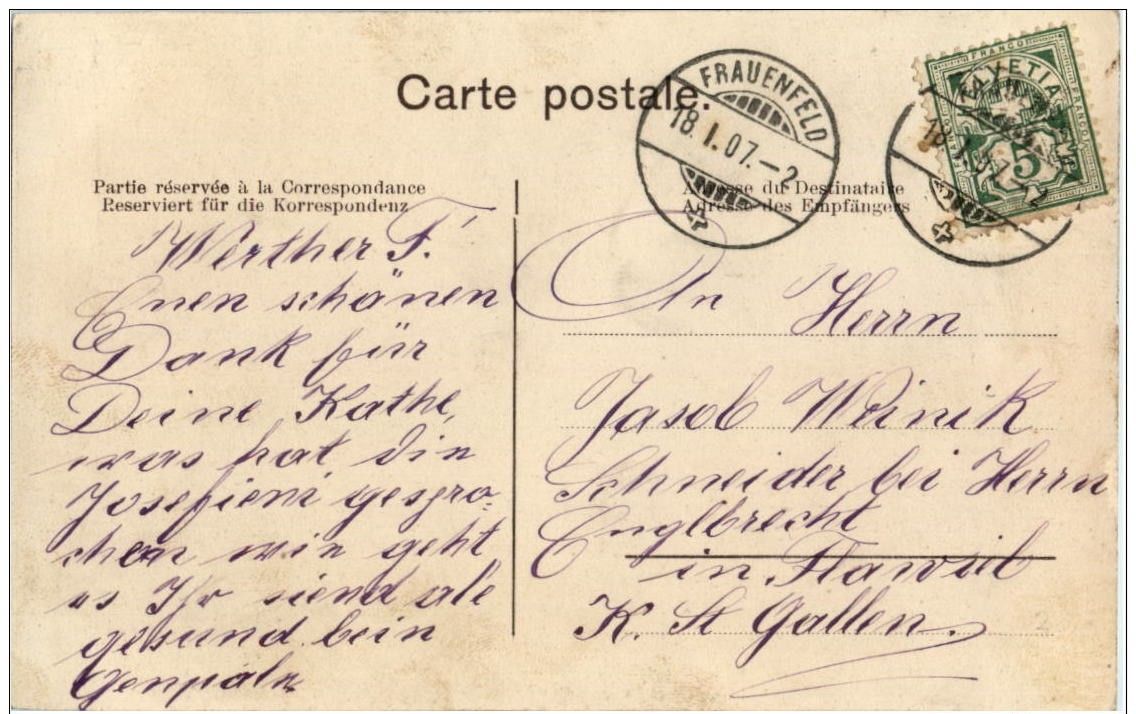 Carte postale.
FRAUENFELD
18.I.07.–2
FRANCO
HELVETIA
FRANCO
5
18.I.07.–2
Partie réservée à la Correspondance
Reserviert für die Korrespondenz
Adresse du Destinataire
Adresse des Empfängers
Werther F.
Enen schönen
Dank für
Deine Kathe,
was hat die
Josefieni gespro-
chen wie geht
es Ihr siend ale
gesund bein
An Herrn
Jasob Weinik
Schneider bei Herrn
Englbrecht
in Flawiel
K. St Gallen.
2